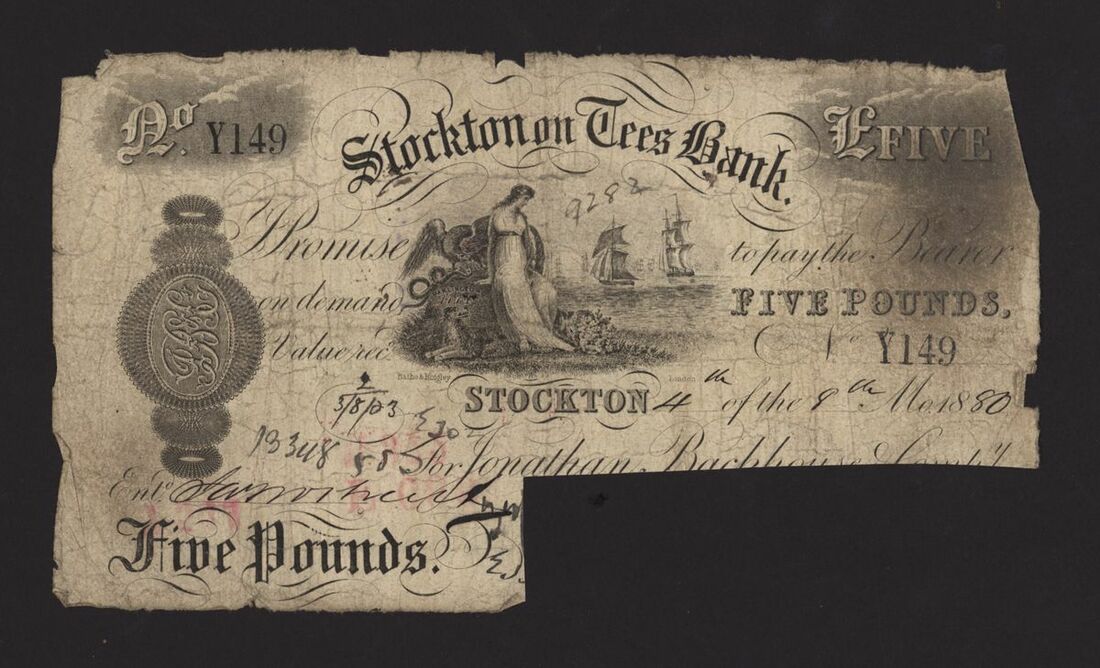 No. Y149
Stockton on Tees Bank.
£FIVE
9282
I Promise to pay the Bearer
on demand FIVE POUNDS,
Value recd. No Y149
London
STOCKTON 4th of the 8th Mo. 1880
3/8/83
13348
For Jonathan Backhouse & Compy
Entd
Five Pounds.